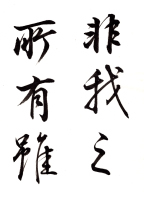 非我之
所有雖